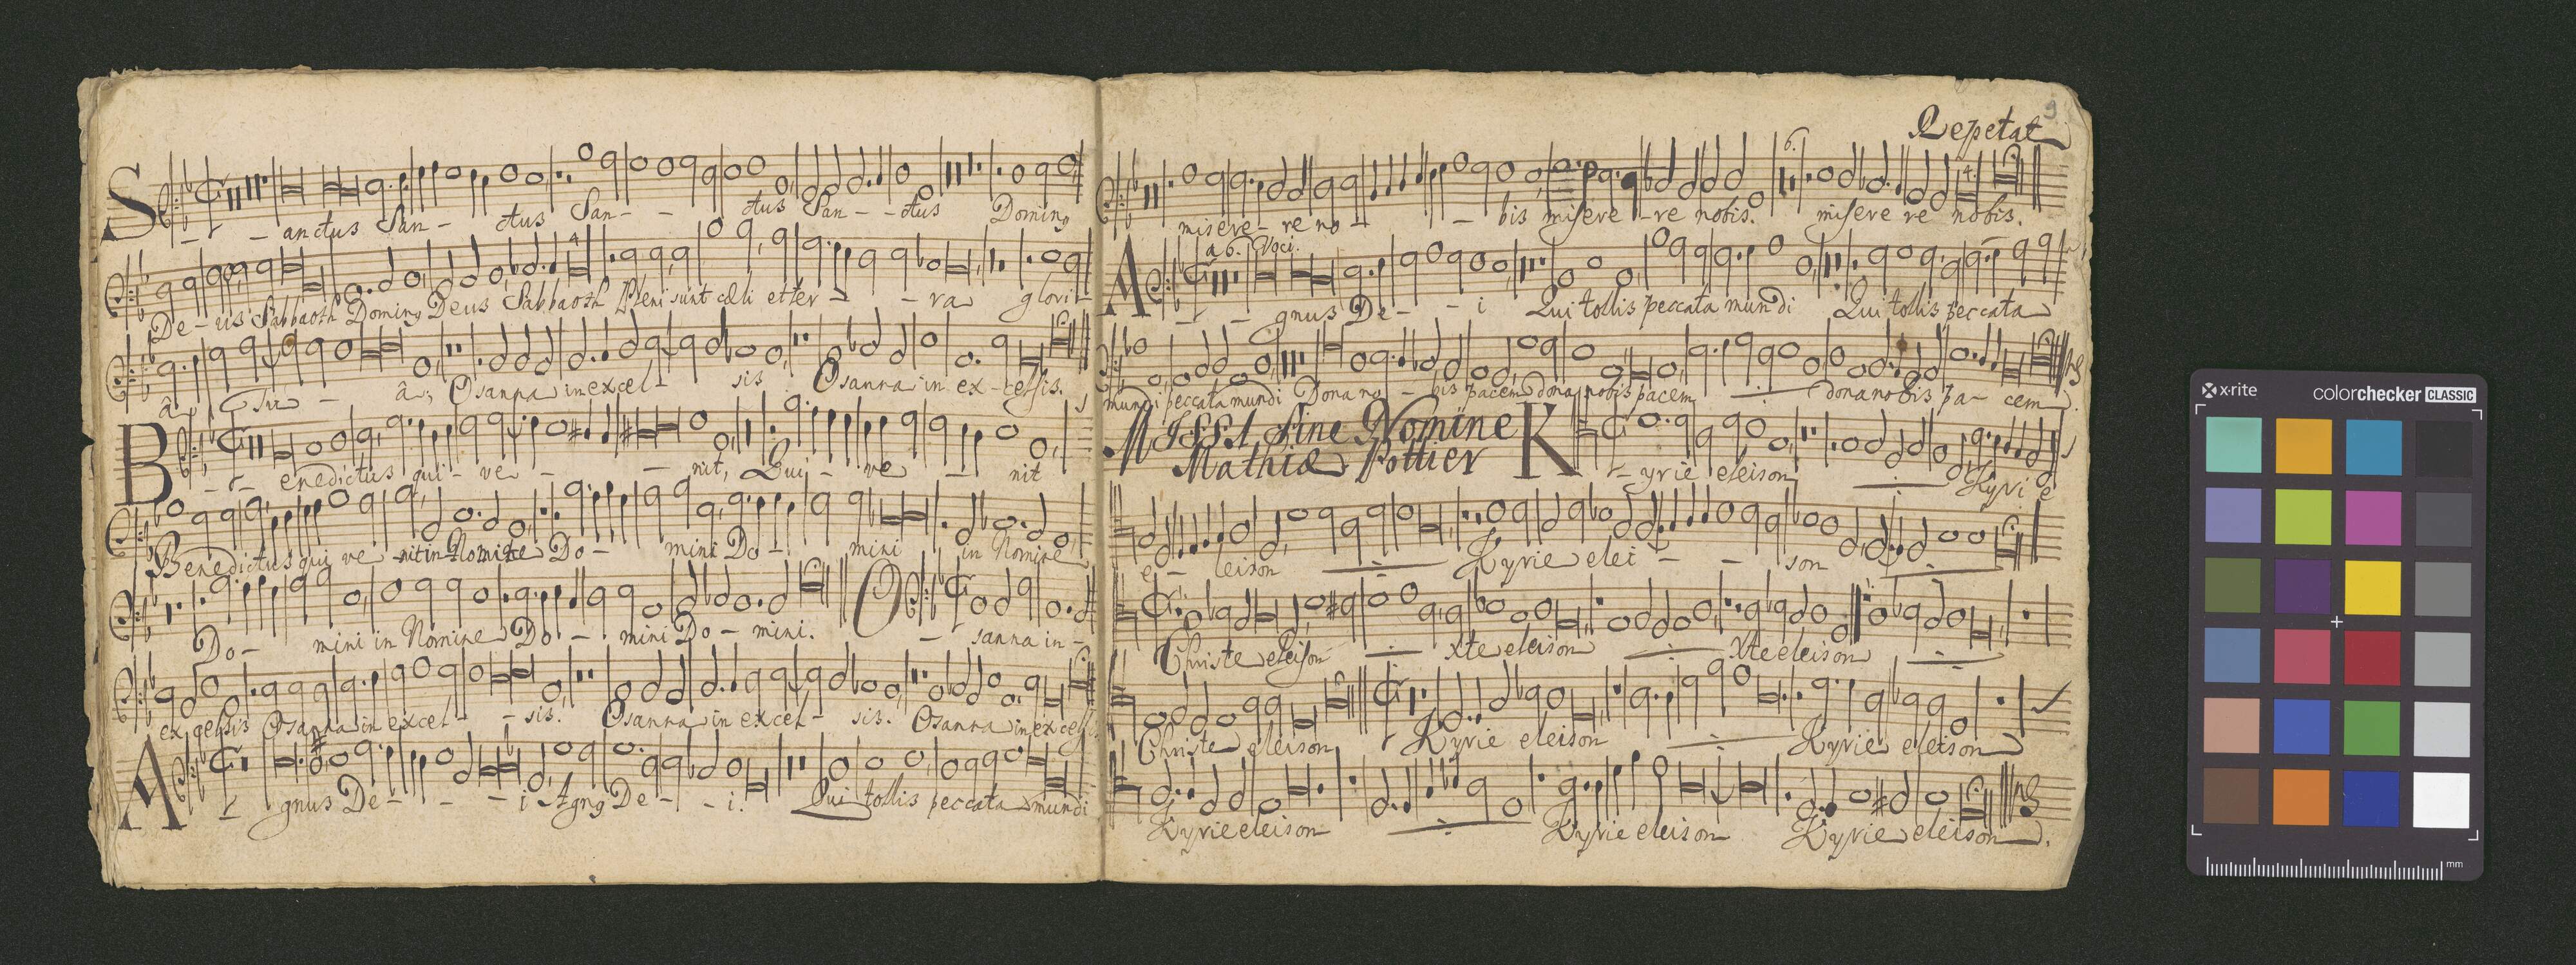 S - - anctus San - ctus San - - ctus San - - ctus Doming
De - us Sabbaoth Doming Deus Sabbaoth Pleni sunt cæli et ter - - ra glori -
a Tu - â; Osanna in excel - sis. Osanna in ex - celsis.
B - - enedictus qui - ve - - nit, Qui - ve - nit
Benedictus qui ve - nit in Nomine Do - mini Do - mini in Nomine
Do - mini in Nomine Do - mini Do - mini. O - sanna in -
excelsis Osanna in excel - - sis. Osanna in excel - sis. Osanna in excelsis
A - gnus De - - - i Agng De - - i. Qui tollis peccata mundi
9
Repetat
6.
misere - re no - - bis misere - re nobis. misere re nobis.
a 6. Voci.
A - - gnus De - - i Qui tollis peccata mundi Qui tollis peccata
mundi peccata mundi Dona no - bis pacem dona nobis pacem dona nobis pa - cem.
MISSA sine Nomine
Mathiæ Pottier
K - yrie eleison Kyri e
e - leison Kyrie elei - - son
Christe eleison xte eleison Xte eleison
Christe eleison Kyrie eleison Kyrie eleison
Kyrie eleison Kyrie eleison Kyrie eleison.
x-rite colorchecker CLASSIC
mm